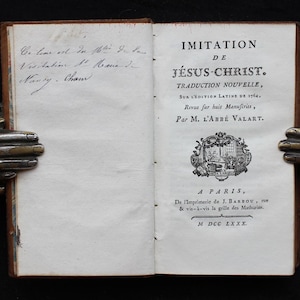 Ce livre est du
de la
Visitation Ste Marie de
Nancy.
IMITATION
DE
JÉSUS-CHRIST.
TRADUCTION NOUVELLE,
SUR L'ÉDITION LATINE DE 1764.
Revue sur huit Manuscrits,
Par M. L'ABBÉ VALART.
A PARIS,
De l'Imprimerie de J. BARBOU, rue
& vis-à-vis la grille des Mathurins.
M DCC LXXX.